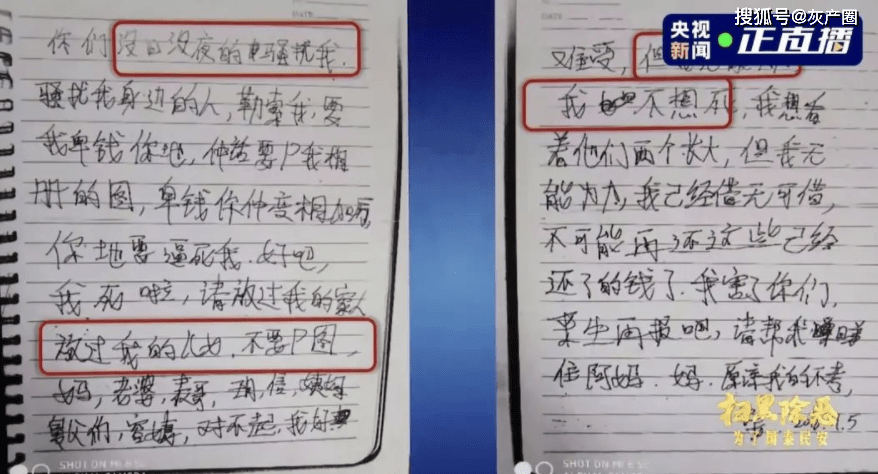 搜狐号@灰产圈
央视新闻 正直播
你们没日没夜的骚扰我.
骚扰我身边的人,勒索我,要
我畀钱你地,仲话要P我相
册的图,畀钱你仲变相加
你地要逼死我.好吧,
我死啦,请放过我的家人
放过我的女,不要P图,
妈,老婆,表哥,
们,对不起,我好
难受,但
我不想死,我想看
着他们两个长大,但我无
能为力,我已经借无可借,
不可能再还这些已经
还了的钱了.我害了你们,
来生再报吧,请帮我
住阿妈.妈.原谅我的不孝,
1.5
扫黑除恶
为了国泰民安
SHOT ON MI 8 SE
SHOT ON MI 8